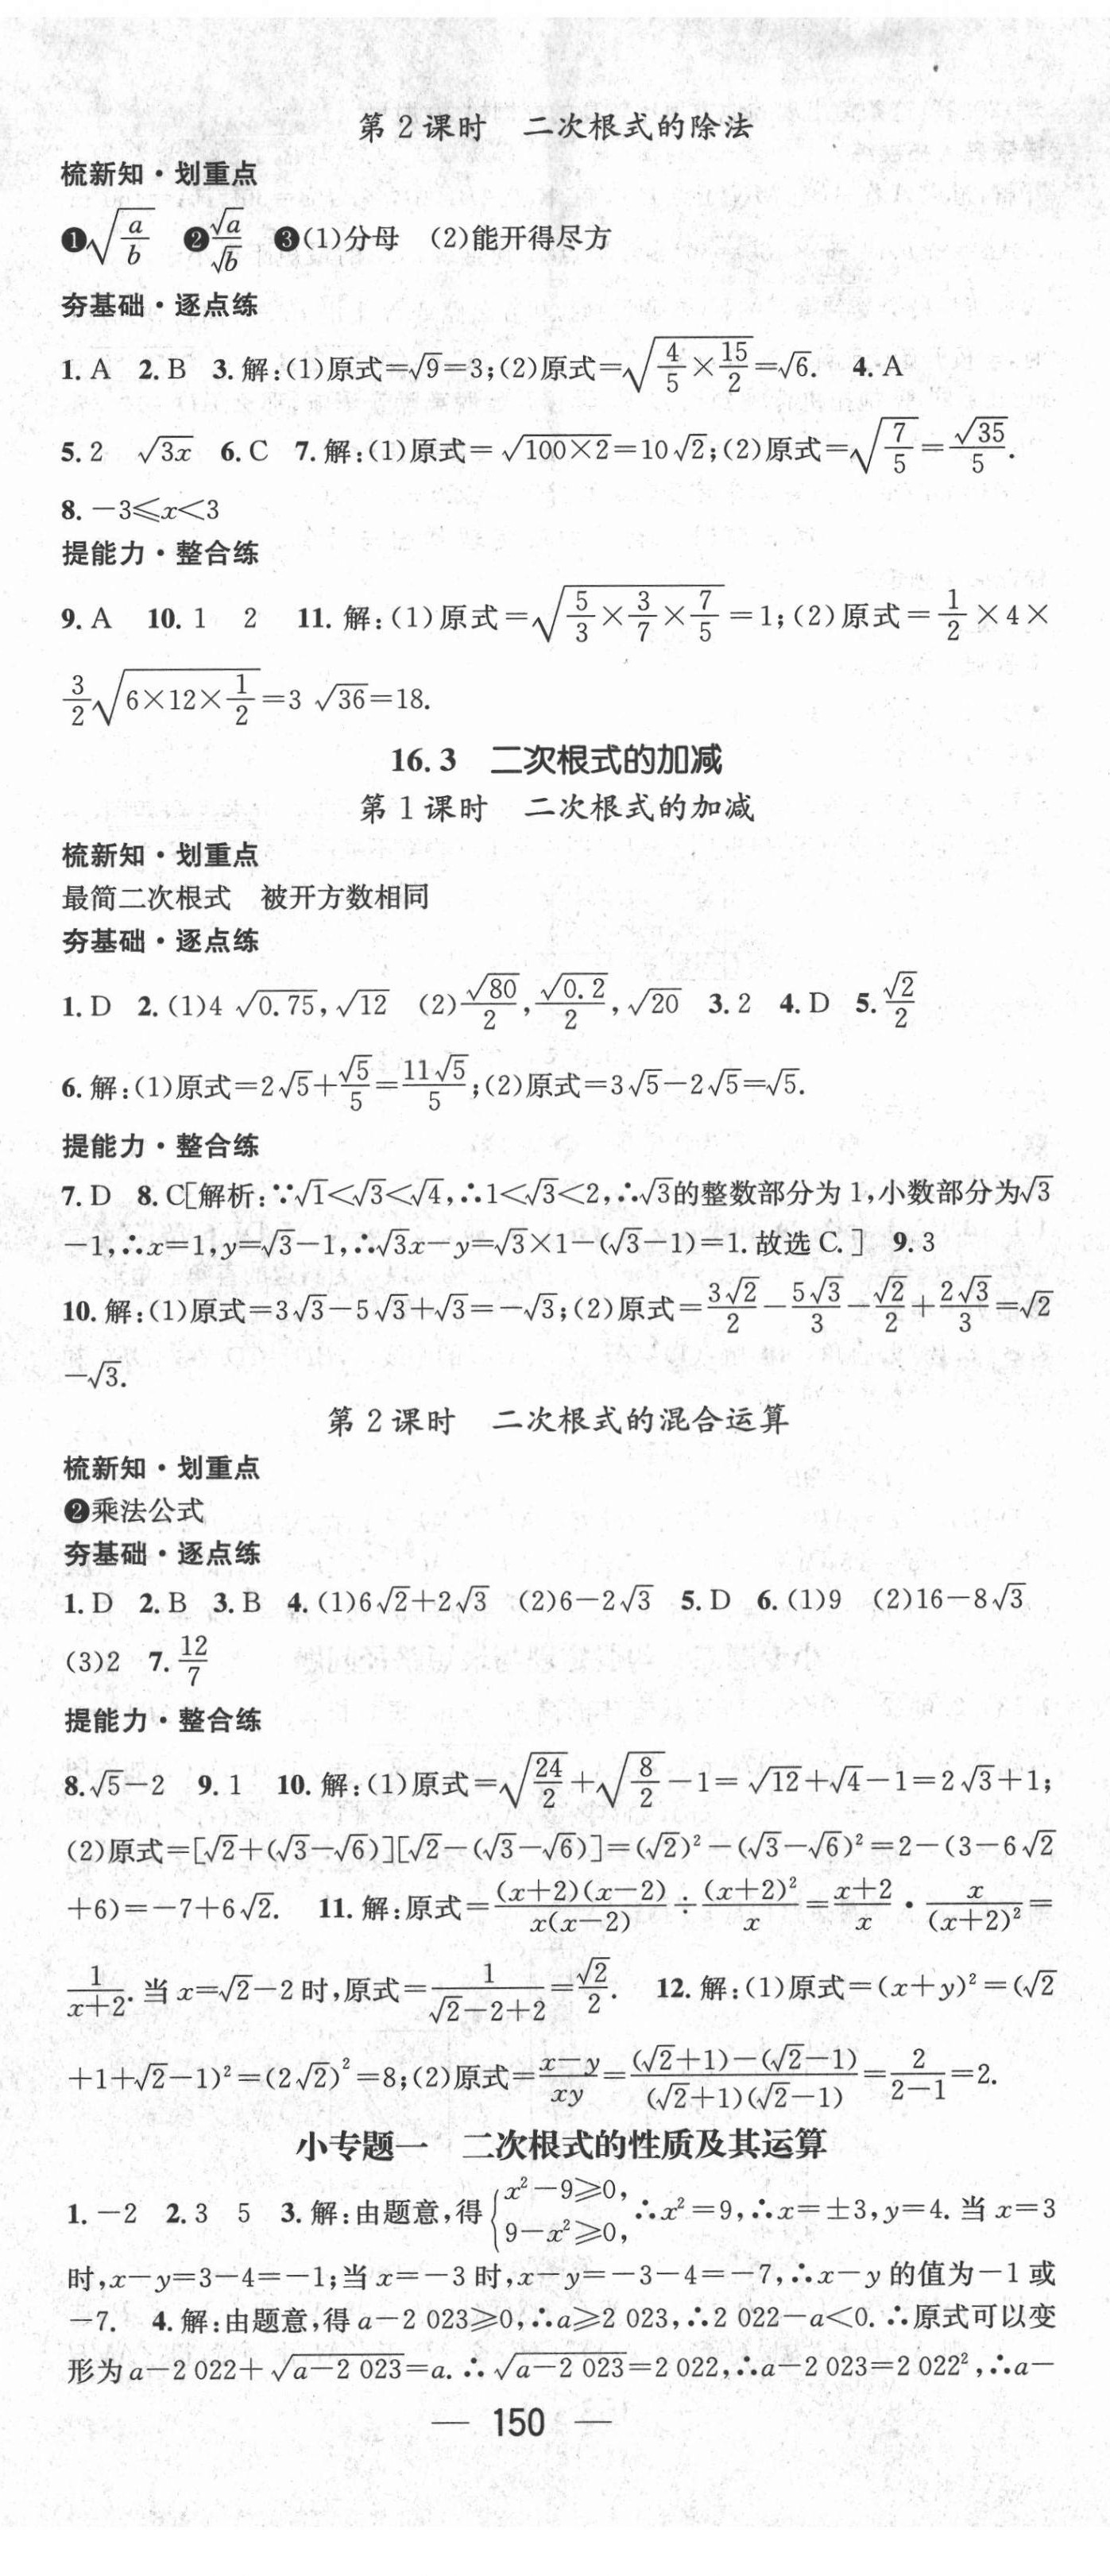 第2课时 二次根式的除法
梳新知·划重点
❶√(a/b) ❷√a/√b ❸(1)分母 (2)能开得尽方
夯基础·逐点练
1. A 2. B 3. 解:(1)原式=√9=3;(2)原式=√(4/5×15/2)=√6. 4. A
5. 2 √(3x) 6. C 7. 解:(1)原式=√(100×2)=10√2;(2)原式=√(7/5)=√35/5.
8. −3≤x<3
提能力·整合练
9. A 10. 1 2 11. 解:(1)原式=√(5/3×3/7×7/5)=1;(2)原式=1/2×4×
3/2√(6×12×1/2)=3√36=18.
16.3 二次根式的加减
第1课时 二次根式的加减
梳新知·划重点
最简二次根式 被开方数相同
夯基础·逐点练
1. D 2. (1)4√0.75,√12 (2)√80/2,√0.2/2,√20 3. 2 4. D 5. √2/2
6. 解:(1)原式=2√5+√5/5=11√5/5;(2)原式=3√5−2√5=√5.
提能力·整合练
7. D 8. C[解析:∵√1<√3<√4,∴1<√3<2,∴√3的整数部分为1,小数部分为√3
−1,∴x=1,y=√3−1,∴√3x−y=√3×1−(√3−1)=1.故选C.] 9. 3
10. 解:(1)原式=3√3−5√3+√3=−√3;(2)原式=3√2/2−5√3/3−√2/2+2√3/3=√2
−√3.
第2课时 二次根式的混合运算
梳新知·划重点
❷乘法公式
夯基础·逐点练
1. D 2. B 3. B 4. (1)6√2+2√3 (2)6−2√3 5. D 6. (1)9 (2)16−8√3
(3)2 7. 12/7
提能力·整合练
8. √5−2 9. 1 10. 解:(1)原式=√(24/2)+√(8/2)−1=√12+√4−1=2√3+1;
(2)原式=[√2+(√3−√6)][√2−(√3−√6)]=(√2)²−(√3−√6)²=2−(3−6√2
+6)=−7+6√2. 11. 解:原式=(x+2)(x−2)/x(x−2)÷(x+2)²/x=x+2/x·x/(x+2)²=
1/x+2.当x=√2−2时,原式=1/√2−2+2=√2/2. 12. 解:(1)原式=(x+y)²=(√2
+1+√2−1)²=(2√2)²=8;(2)原式=x−y/xy=(√2+1)−(√2−1)/(√2+1)(√2−1)=2/2−1=2.
小专题一 二次根式的性质及其运算
1. −2 2. 3 5 3. 解:由题意,得{x²−9≥0,9−x²≥0,∴x²=9,∴x=±3,y=4.当x=3
时,x−y=3−4=−1;当x=−3时,x−y=−3−4=−7,∴x−y的值为−1或
−7. 4. 解:由题意,得a−2 023≥0,∴a≥2 023,∴2 022−a<0.∴原式可以变
形为a−2 022+√(a−2 023)=a.∴√(a−2 023)=2 022,∴a−2 023=2 022²,∴a−
— 150 —